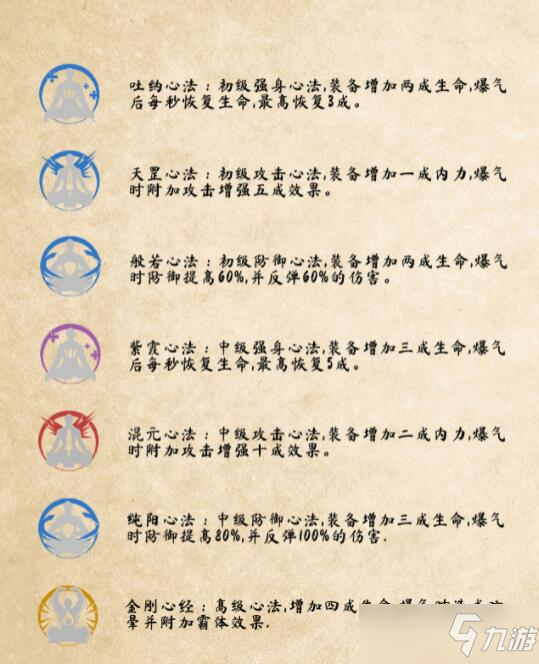 吐纳心法：初级强身心法,装备增加两成生命,爆气
后每秒恢复生命,最高恢复3成。
天罡心法：初级攻击心法,装备增加一成内力,爆气
时附加攻击增强五成效果。
般若心法：初级防御心法,装备增加两成生命,爆气
时防御提高60%,并反弹60%的伤害。
紫霞心法：中级强身心法,装备增加三成生命,爆气
后每秒恢复生命,最高恢复5成。
混元心法：中级攻击心法,装备增加二成内力,爆气
时附加攻击增强十成效果。
纯阳心法：中级防御心法,装备增加三成生命,爆气
时防御提高80%,并反弹100%的伤害.
金刚心经：高级心法,增加四成生命,爆气时
晕并附加霸体效果.
九游